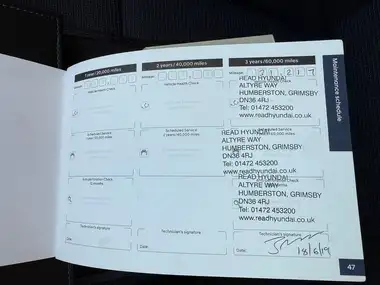 1 year/20,000 miles
Mileage
Vehicle Health Check
Scheduled Service
Technician's signature
Date:
2 years/40,000 miles
Mileage
Vehicle Health Check
Scheduled Service
Technician's signature
Date:
3 years/60,000 miles
Mileage
READ HYUNDAI
ALTYRE WAY
HUMBERSTON, GRIMSBY
DN36 4RJ
Tel: 01472 453200
www.readhyundai.co.uk
Scheduled Service
READ HYUNDAI
ALTYRE WAY
HUMBERSTON, GRIMSBY
DN36 4RJ
Tel: 01472 453200
www.readhyundai.co.uk
READ HYUNDAI
ALTYRE WAY
HUMBERSTON, GRIMSBY
DN36 4RJ
Tel: 01472 453200
www.readhyundai.co.uk
Technician's signature
Date:
18/6/19
Maintenance schedule
47